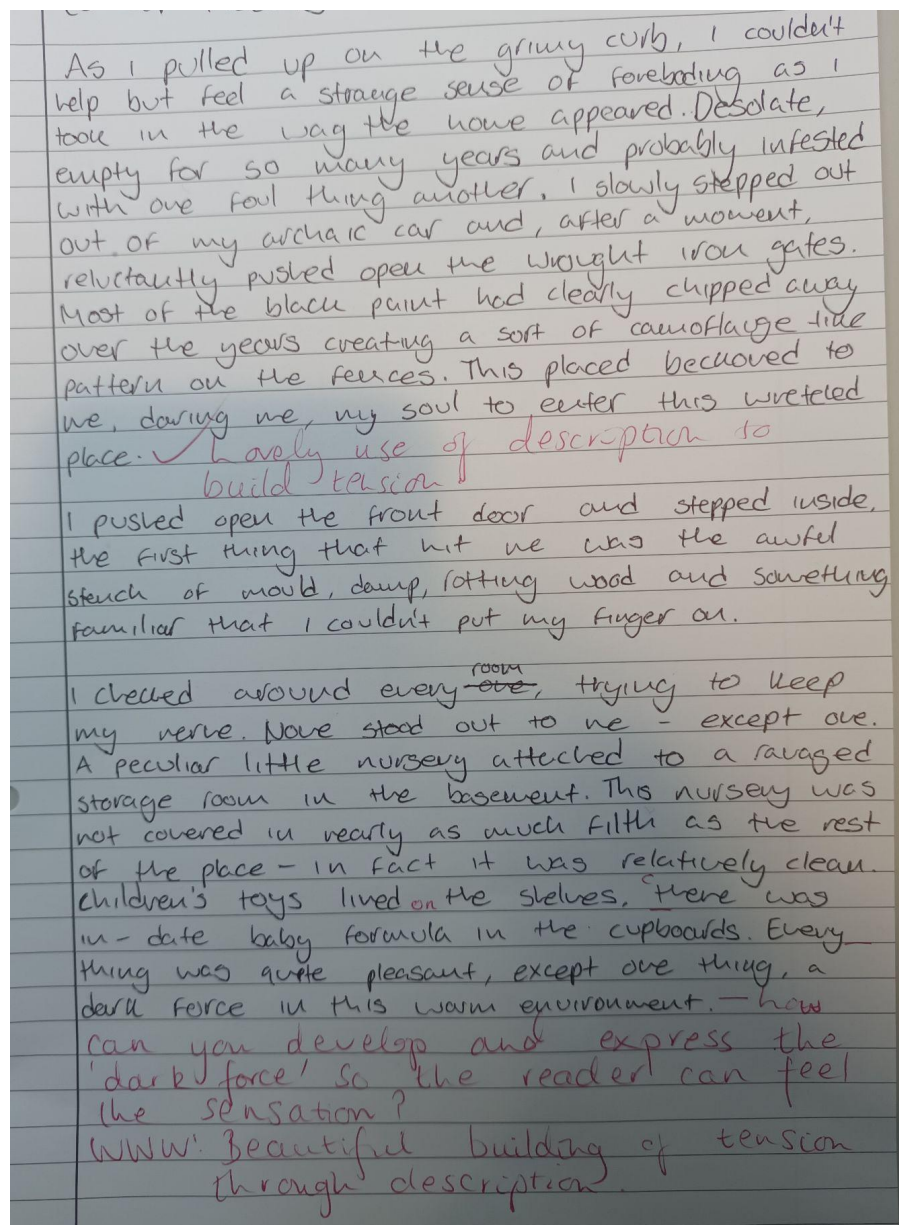 As I pulled up on the grimy curb, I couldn't
help but feel a strange sense of foreboding as I
took in the way the home appeared. Desolate,
empty for so many years and probably infested
with one foul thing another. I slowly stepped out
out of my archaic car and, after a moment,
reluctantly pushed open the wrought iron gates.
Most of the black paint had clearly chipped away
over the years creating a sort of camoflauge like
pattern on the fences. This placed beckoned to
me, daring me, my soul to enter this wreteled
place. ✓ Lovely use of description to
build tension
I pushed open the front door and stepped inside,
the first thing that hit me was the awful
stench of mould, damp, rotting wood and something
familiar that I couldn't put my finger on.
room
I checked around every one, trying to keep
my nerve. None stood out to me - except one.
A peculiar little nursery attached to a ravaged
storage room in the basement. This nursery was
not covered in nearly as much filth as the rest
of the place - in fact it was relatively clean.
Children's toys lined on the shelves, there was
in-date baby formula in the cupboards. Every
thing was quite pleasant, except one thing, a
dark force in this warm environment. - how
can you develop and express the
'dark force' so the reader can feel
the sensation?
WWW: Beautiful building of tension
through description.